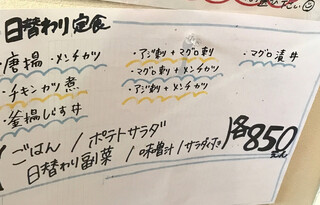 日替わり定食
・唐揚・メンチカツ
・チキンカツ煮
・釜揚しらす丼
・アジ刺+マグロ刺
・マグロ刺+メンチカツ
・アジ刺+メンチカツ
・マグロ漬丼
ごはん / ポテトサラダ
日替わり副菜 / 味噌汁 / サラダ付き
各850